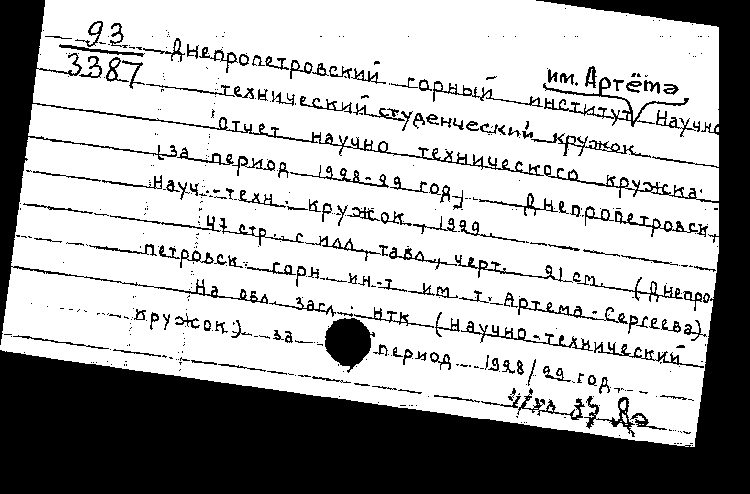 93
3387
Днепропетровский горный институт им. Артёма Научно
технический студенческий кружок
Отчет научно технического кружка
[за период 1928-29 год] Днепропетровск,
Науч.-техн. кружок, 1929.
47 стр. с илл., табл., черт. 21 см. (Днепро-
петровск. горн. ин-т им. т. Артема-Сергеева).
На обл. загл.: НТК (научно-технический
кружок) за период 1928/29 год.